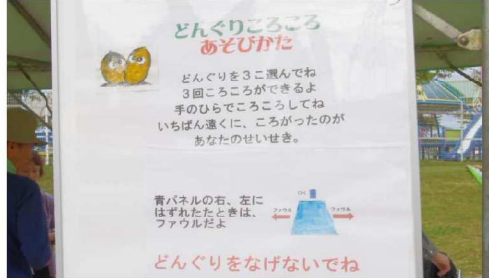 どんぐりころころ
あそびかた
どんぐりを3こ選んでね
3回ころころができるよ
手のひらでころころしてね
いちばん遠くに、ころがったのが
あなたのせいせき。
青パネルの右、左に
はずれたたときは、
ファウルだよ
OK
ファウル
ファウル
どんぐりをなげないでね